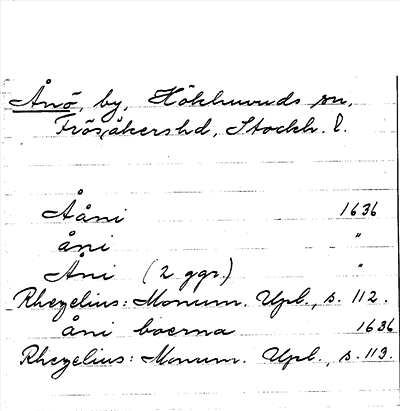 Ånö, by, Hökhuvuds sn,
Frösåkershd, Stockh. l.
Aåni 1636
åni "
Åni (2 ggr.) "
Rhezelius: Monum. Upl., s. 112.
åni boerna 1636
Rhezelius: Monum. Upl., s. 113.